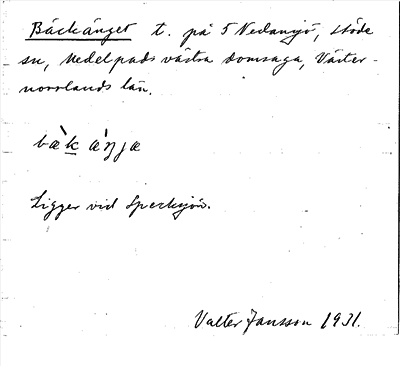 Bäckänget t. på 5 Nedansjö, Stöde
sn, Medelpads västra domsaga, Väster-
norrlands län.
bæ̀k æ̀ŋja
Ligger vid Sperksjön.
Valter Jansson 1931.